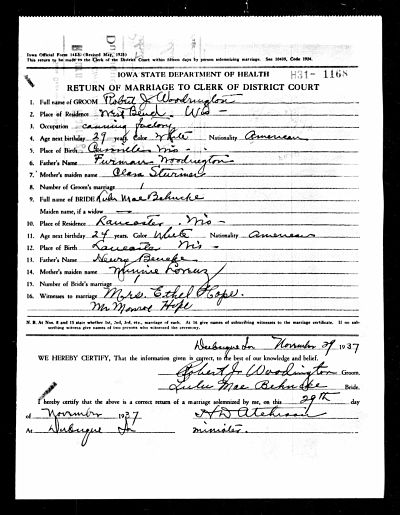 Iowa Official Form (Revised May, 1925)
This return to be made to the Clerk of the District Court within fifteen days by person solemnizing marriage. See 10439, Code 1924.
IOWA STATE DEPARTMENT OF HEALTH
H31- 1168
RETURN OF MARRIAGE TO CLERK OF DISTRICT COURT
1. Full name of GROOM Robert J. Woodrington
2. Place of Residence West Bend, Wis -
3. Occupation canning factory
4. Age next birthday 29 years Color White Nationality American
5. Place of Birth Wis -
6. Father's Name Furman Woodrington
7. Mother's maiden name Clara Sturmer
8. Number of Groom's marriage 1
9. Full name of BRIDE Mae Behncke
Maiden name, if a widow —
10. Place of Residence Lancaster, Wis -
11. Age next birthday 24 years. Color White Nationality American
12. Place of Birth Lancaster Wis -
13. Father's Name Henry
14. Mother's maiden name Minnie Lorenz
15. Number of Bride's marriage
16. Witnesses to marriage Mrs. Ethel Hope.
Mr Monroe Hope
N. B. At Nos. 8 and 15 state whether 1st, 2nd, 3rd, etc., marriage of each. At 16 give names of subscribing witnesses to the marriage certificate. If no subscribing witness give names of two persons who witnessed the ceremony.
Dubuque Ia November 29 1937
WE HEREBY CERTIFY, That the information given is correct, to the best of our knowledge and belief.
Robert J. Woodrington Groom.
Lulu Mae Behncke Bride.
I hereby certify that the above is a correct return of a marriage solemnized by me, on this 29th day
of November 1937 H D Atchison
At Dubuque Ia minister.